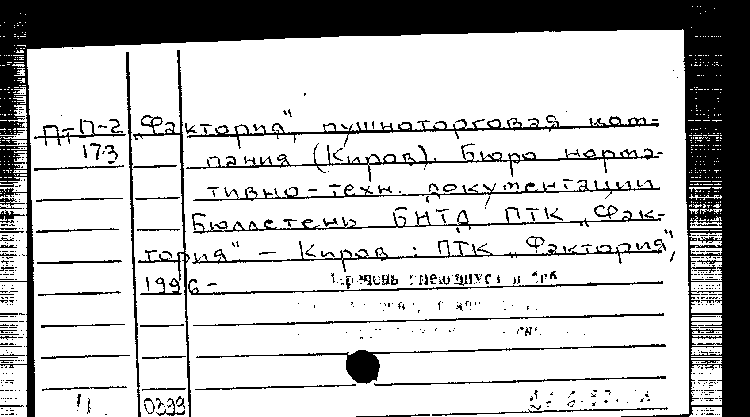 ПтП-2 „Фактория", пушноторговая ком-
173 пания (Киров). Бюро норма-
тивно-техн. документации
Бюллетень БНТД ПТК „Фак-
тория" — Киров : ПТК „Фактория",
1996 -
0399